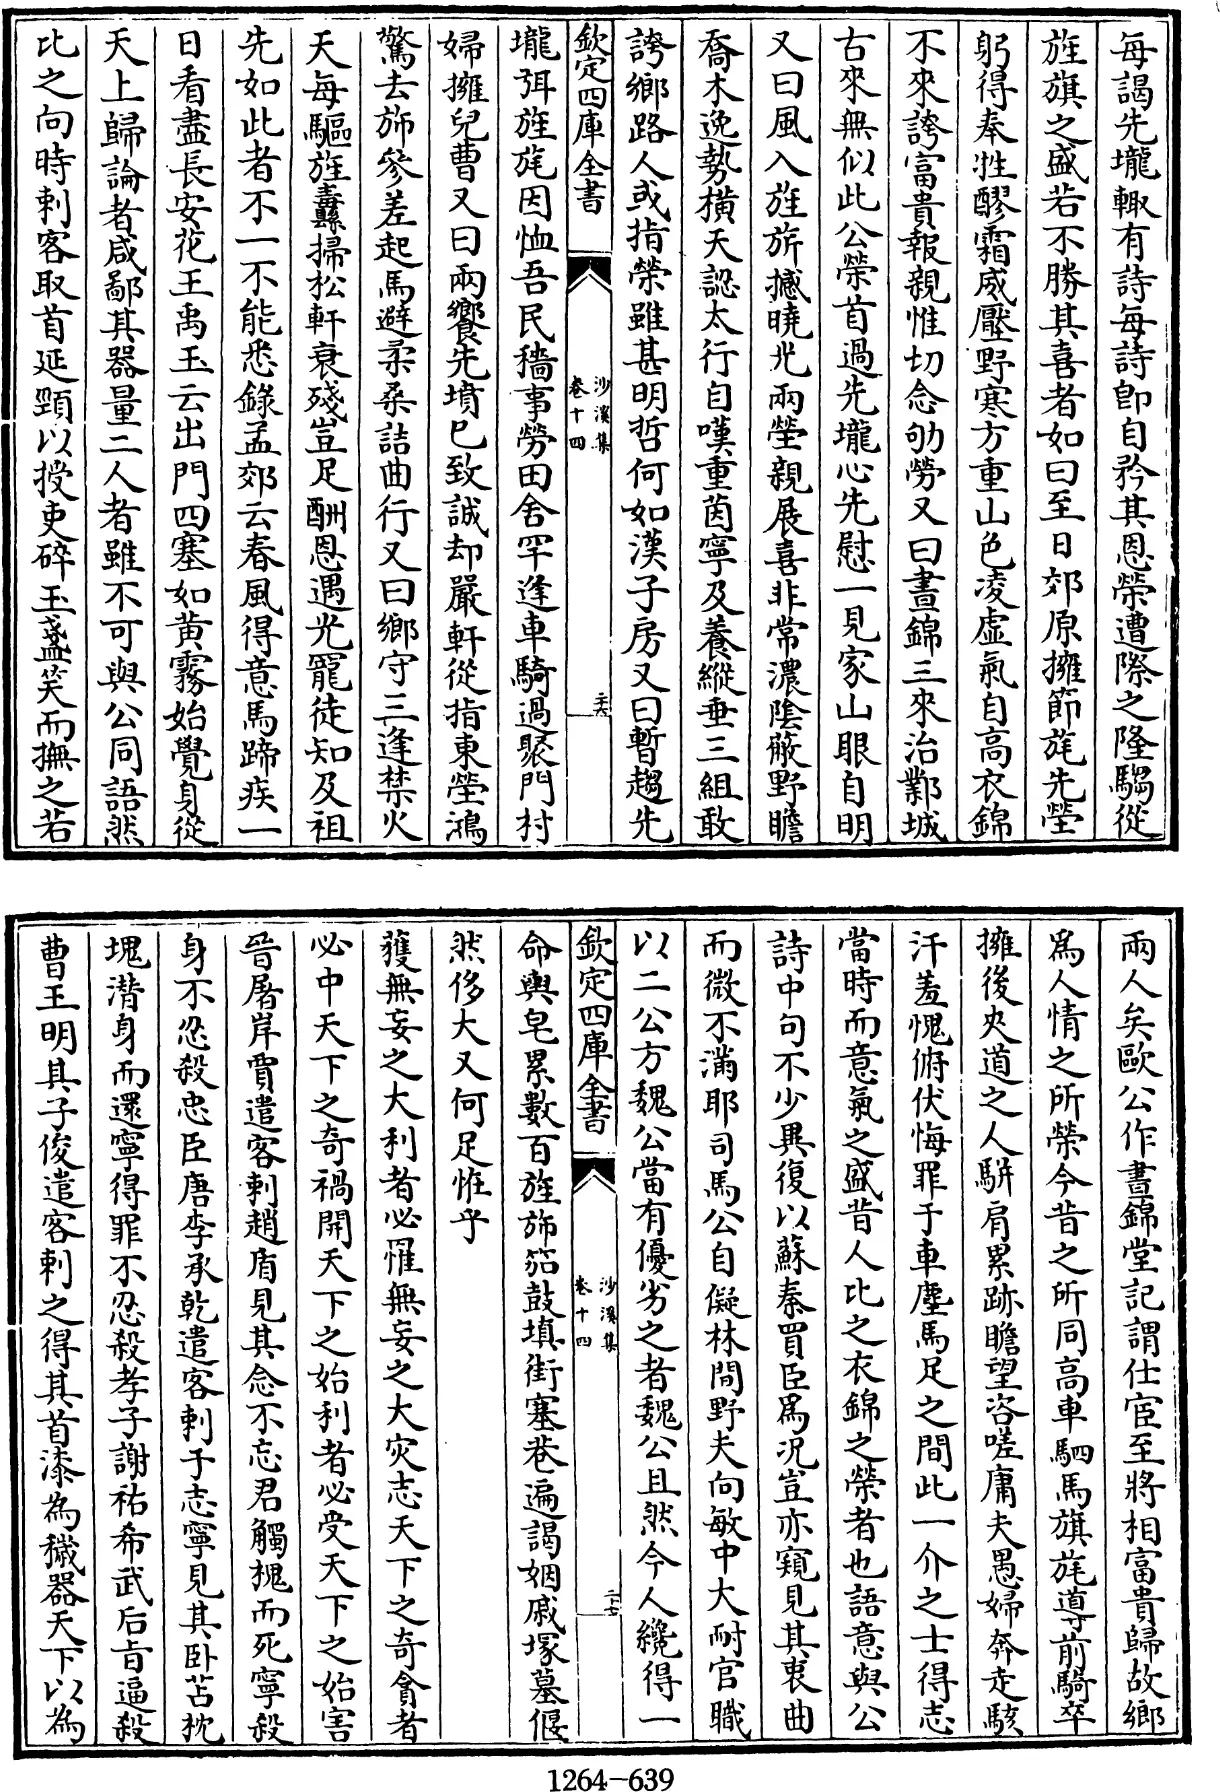 每謁先壠輙有詩每詩即自矜其恩榮遭際之隆騶從
旌旗之盛若不勝其喜者如曰至日郊原擁節旄先塋
躬得奉牲醪霜威壓野寒方重山色凌虛氣自高衣錦
不來誇富貴報親惟切念劬勞又曰晝錦三來治鄴城
古來無似此公榮首過先壠心先慰一見家山眼自明
又曰風入旌旂撼曉光兩塋親展喜非常濃陰蔽野瞻
喬木逸勢横天認太行自嘆重茵寧及養縱垂三組敢
誇鄉路人或指榮雖甚明哲何如漢子房又曰暫趨先
欽定四庫全書
沙溪集
卷十四
二十六
壠弭旌旄因恤吾民穡事勞田舍罕逢車騎過聚門村
婦擁兒曹又曰兩饗先墳已致誠却嚴軒從指東塋鴻
驚去斾參差起馬避柔桑詰曲行又曰鄉守三逢禁火
天每驅旌纛掃松軒衰殘豈足酬恩遇光寵徒知及祖
先如此者不一不能悉錄孟郊云春風得意馬蹄疾一
日看盡長安花王禹玉云出門四塞如黄霧始覺身從
天上歸論者咸鄙其器量二人者雖不可與公同語然
比之向時刺客取首延頸以授吏碎玉盞笑而撫之若
兩人矣歐公作晝錦堂記謂仕宦至將相富貴歸故鄉
爲人情之所榮今昔之所同高車駟馬旗旄導前騎卒
擁後夾道之人駢肩累跡瞻望咨嗟庸夫愚婦奔走駭
汗羞愧俯伏悔罪于車塵馬足之間此一介之士得志
當時而意氣之盛昔人比之衣錦之榮者也語意與公
詩中句不少異復以蘇秦買臣爲况豈亦窺見其衷曲
而微不滿耶司馬公自儗林間野夫向敏中大耐官職
以二公方魏公當有優劣之者魏公且然今人纔得一
欽定四庫全書
沙溪集
卷十四
二十七
命輿皂累數百旌斾笳鼓填街塞巷遍謁姻戚塚墓偃
然侈大又何足恠乎
獲無妄之大利者必罹無妄之大灾志天下之奇貪者
必中天下之奇禍開天下之始利者必受天下之始害
晉屠岸賈遣客刺趙盾見其念不忘君觸槐而死寧殺
身不忍殺忠臣唐李承乾遣客刺于志寧見其卧苫枕
塊潛身而還寧得罪不忍殺孝子謝祐希武后旨逼殺
曹王明其子俊遣客刺之得其首漆為穢器天下以為
1264-639